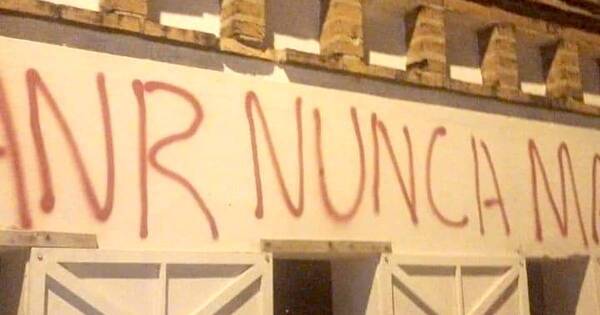 ANR NUNCA MA